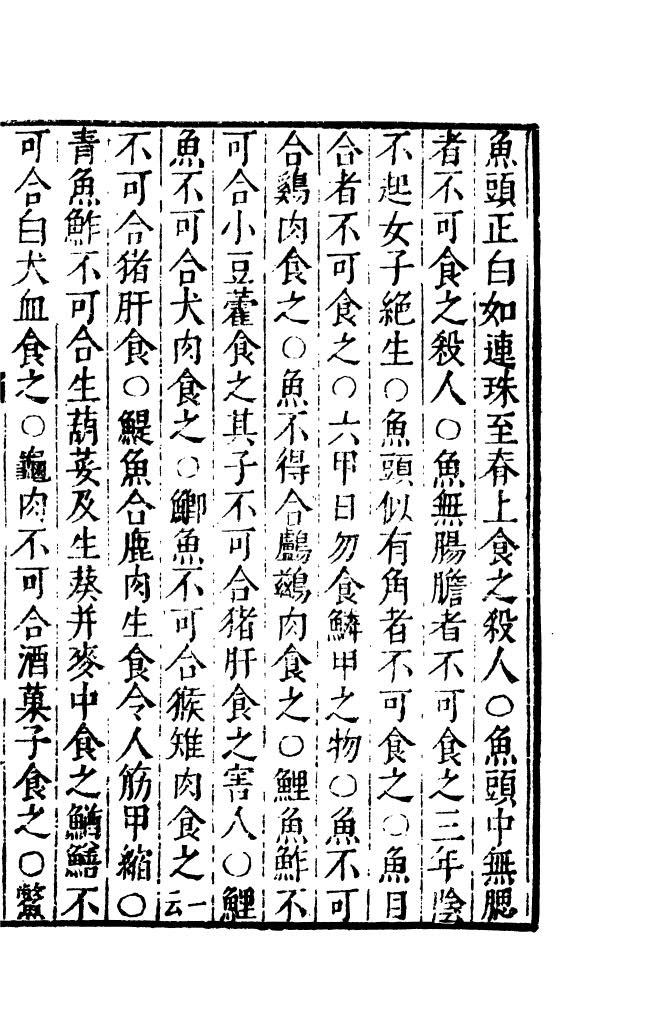 魚頭正白如連珠至脊上食之殺人○魚頭中無腮
者不可食之殺人○魚無腸膽者不可食之三年陰
不起女子絕生○魚頭似有角者不可食之○魚目
合者不可食之○六甲日勿食鱗甲之物○魚不可
合鷄肉食之○魚不得合鸕鶿肉食之○鯉魚鮓不
可合小豆藿食之其子不可合猪肝食之害人○鯉
魚不可合犬肉食之○鯽魚不可合猴雉肉食之一云
不可合猪肝食○鯷魚合鹿肉生食令人筋甲縮○
青魚鮓不可合生葫荽及生葵并麥中食之鰌鱔不
可合白犬血食之○龜肉不可合酒菓子食之○鱉